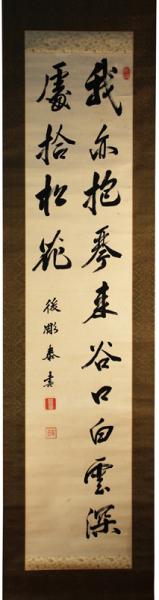 我亦抱琴来谷口白雲深
處拾松花
後彫泰書